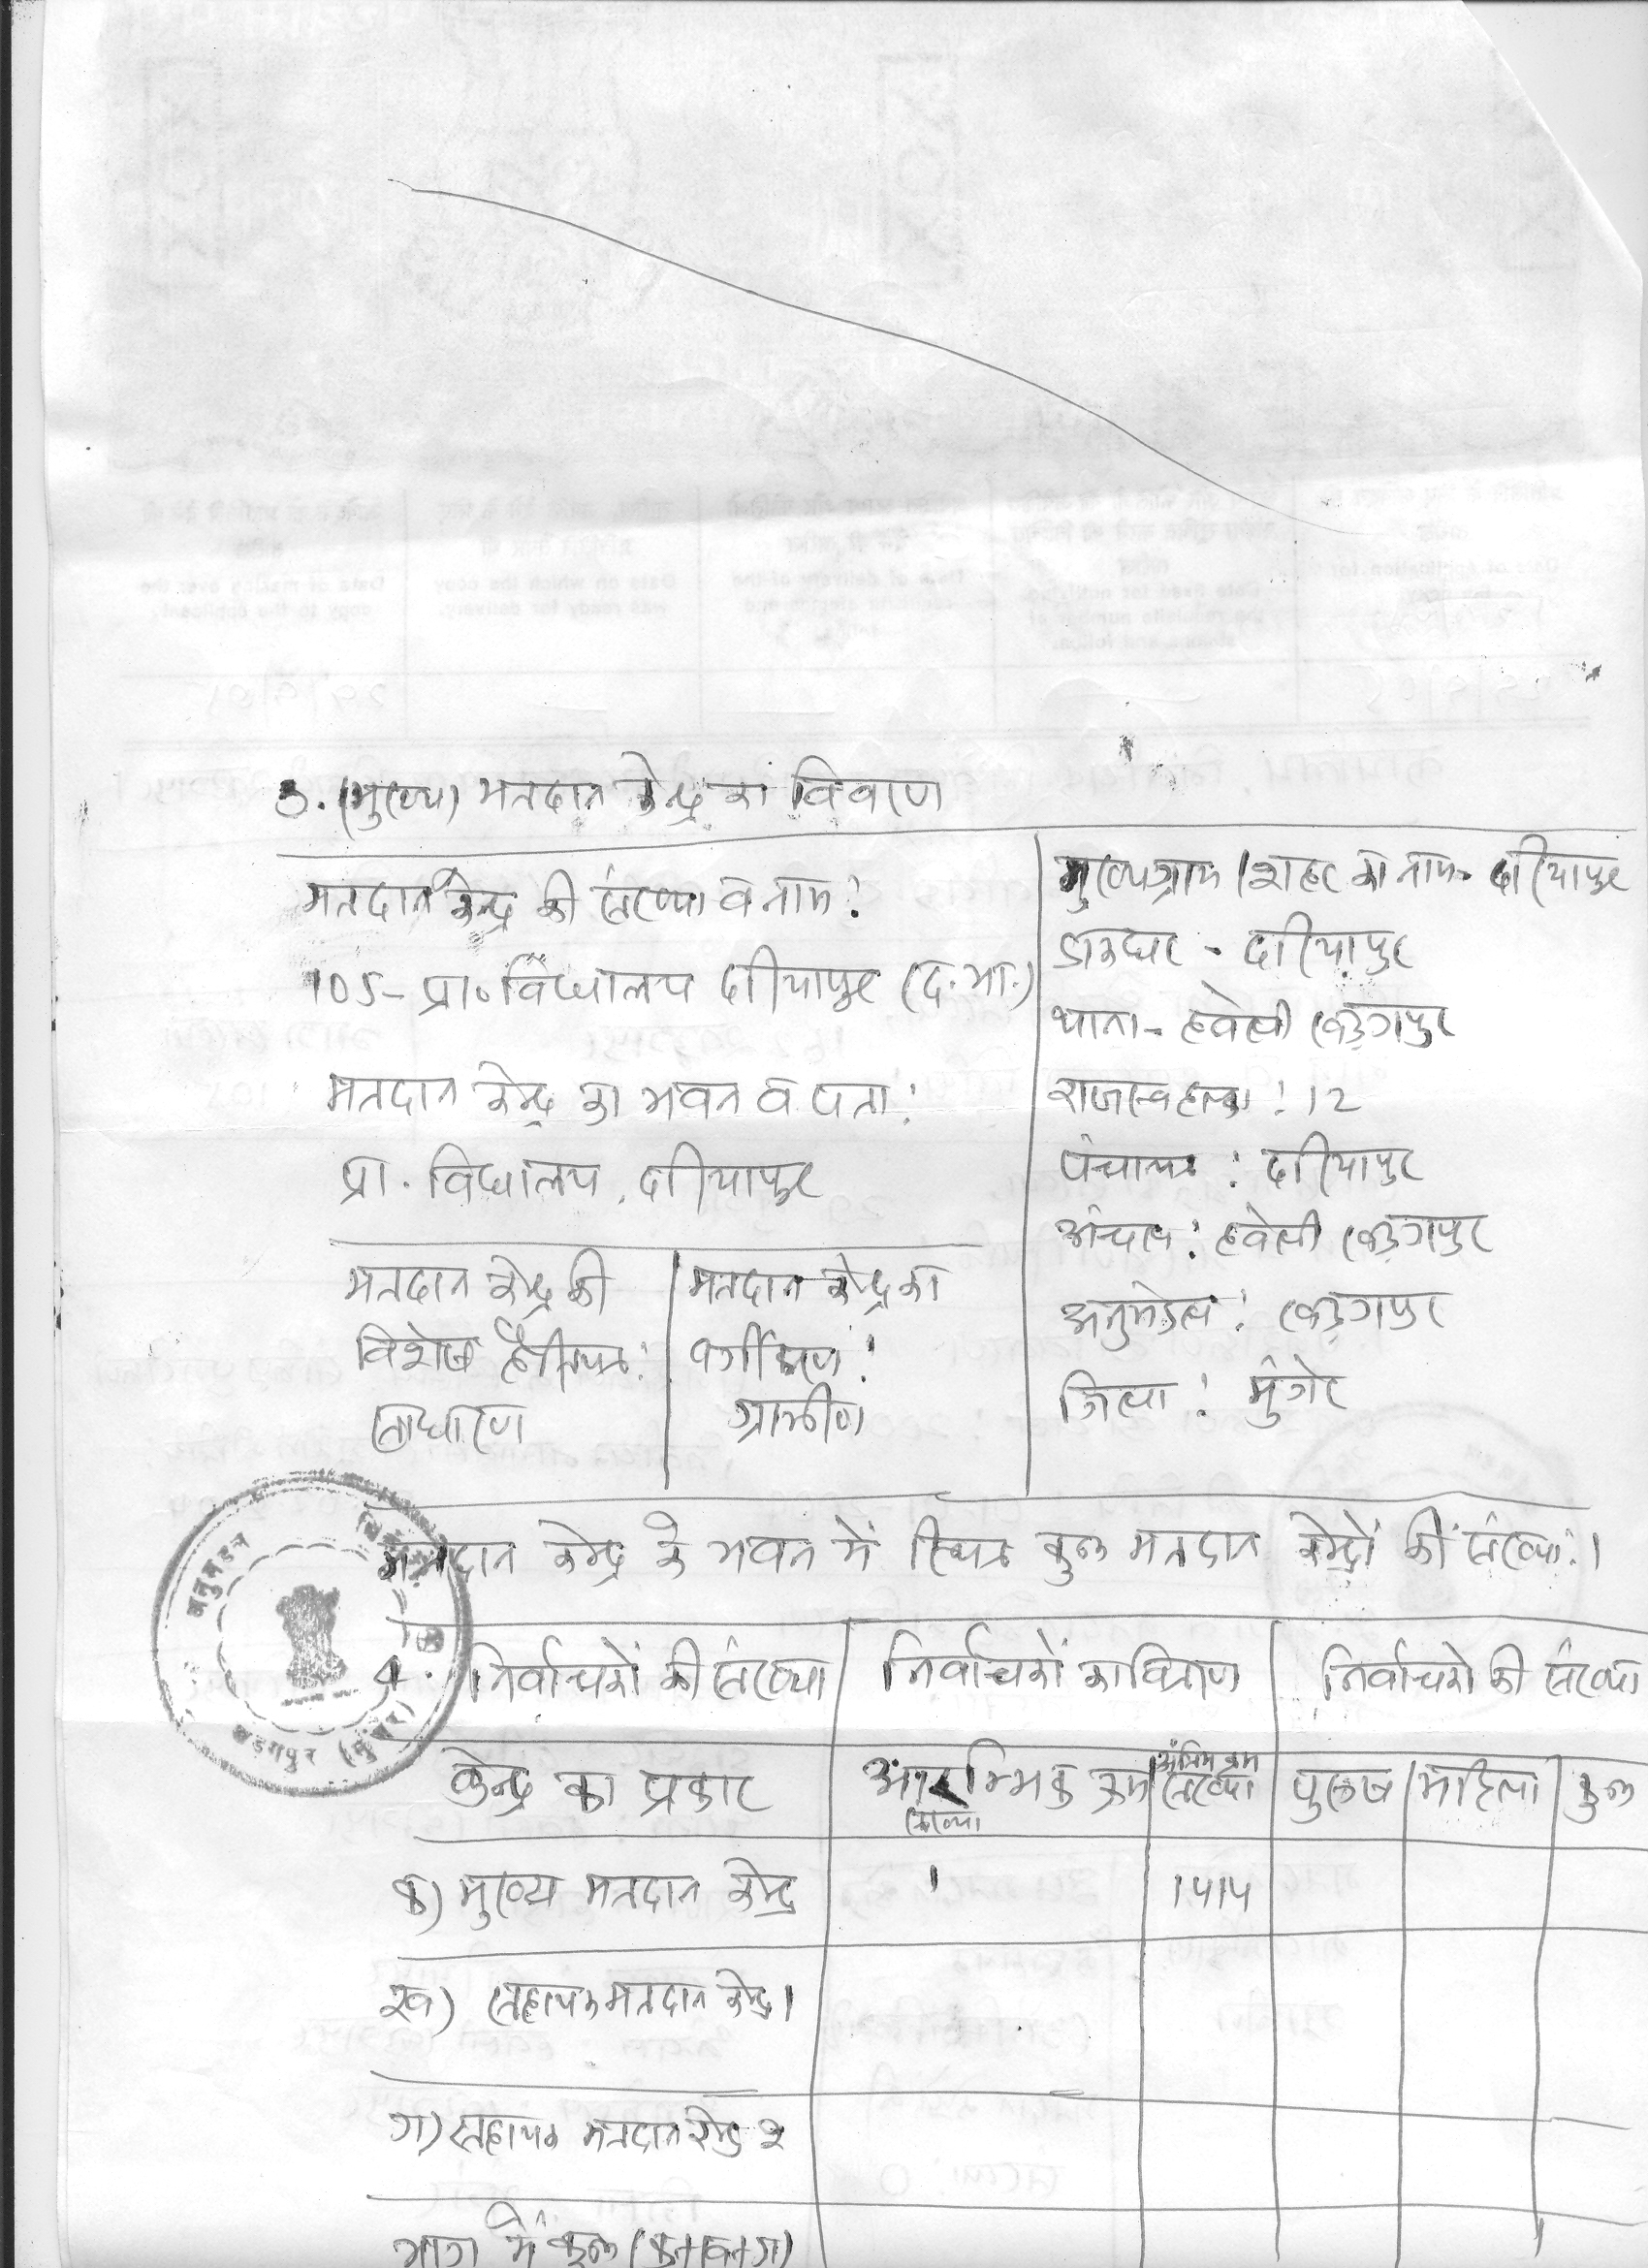 3. (मुख्य) मतदान केन्द्र का विवरण
मतदान केन्द्र की संख्या व नाम :
105- प्रा० विद्यालय दरियापुर (द. भा.)
मतदान केन्द्र का भवन व पता :
प्रा. विद्यालय, दरियापुर
मतदान केन्द्र की
विशेष हैसियत :
साधारण
मतदान केन्द्र का
वर्गीकरण :
ग्रामीण
मुख्य ग्राम / शहर का नाम - दरियापुर
डाकघर - दरियापुर
थाना - हवेली खड़गपुर
राजस्व हल्का : 12
पंचायत : दरियापुर
अंचल : हवेली खड़गपुर
अनुमंडल : खड़गपुर
जिला : मुंगेर
मतदान केन्द्र के भवन में स्थित कुल मतदान केन्द्रों की संख्या : 1
4. निर्वाचकों की संख्या निर्वाचकों का विवरण निर्वाचकों की संख्या
केन्द्र का प्रकार आरम्भिक क्रम संख्या अंतिम क्रम संख्या पुरूष महिला कुल
क) मुख्य मतदान केन्द्र 1 1414
ख) सहायक मतदान केन्द्र 1
ग) सहायक मतदान केन्द्र 2
भाग में कुल (क+ख+ग)
अनुमंडल
खड़गपुर (मुंगेर)